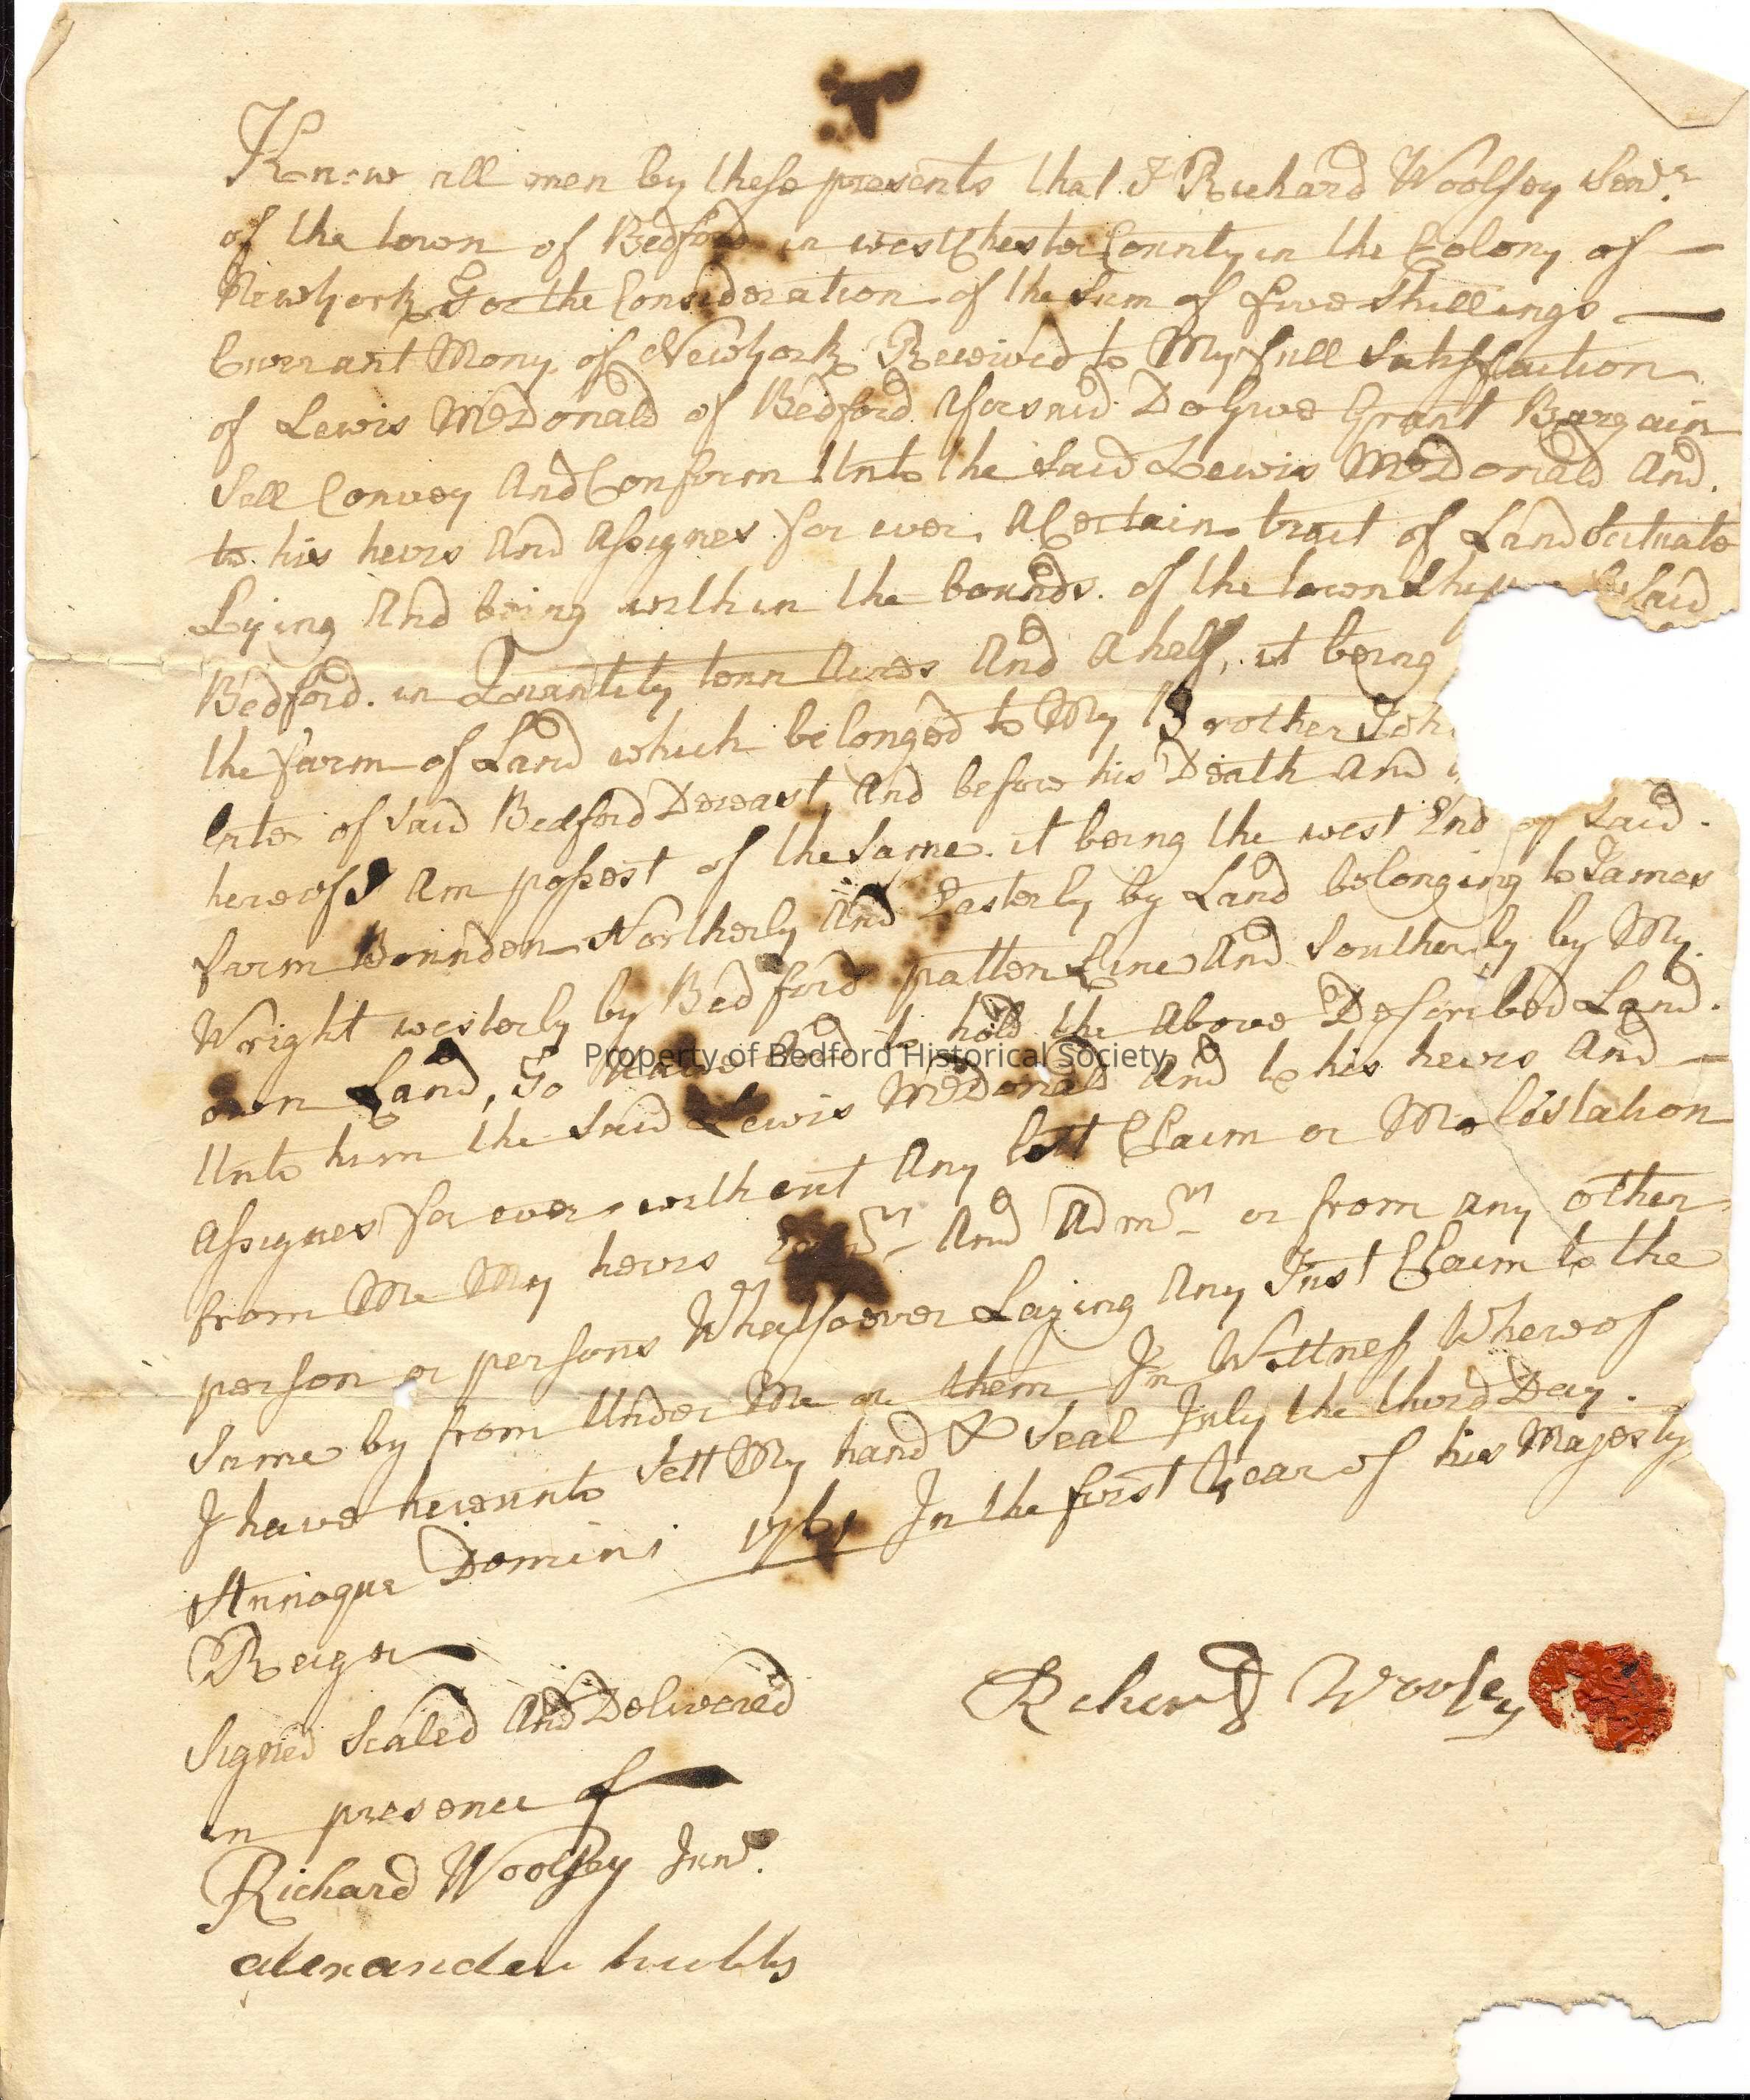 Know all men by these presents that I Richard Woolsey Senr.
of the town of Bedford in westChester County in the Colony of —
Newyork For the Consideration of the Sum of five Shillings —
Currant Mony of Newyork Received to My full Satisfaction
of Lewis McDonald of Bedford Aforsaid Do Give Grant Bargain
Sell Convey And Confirm Unto the Said Lewis McDonald And
to his heirs And Assignes for ever A Certain tract of Land Scituate
Lying And being within the bounds of the townShip Said
Bedford. in Quantity tenn Acres And A half, it being
the farm of Land which belonged to My Brother Joh
late of Said Bedford Deceast And before his Death And
hereof I Am possest of the Same. it being the west End of Said.
farm Bounden Northerly And Easterly by Land belonging to James
Wright westerly by Bedford patten Line And Southerly by My
own Land, To have And to hold the Above Described Land.
Unto him the Said Lewis McDonald And to his heirs And —
Assignes for ever without Any Lett Claim or Molistation
from Me My heirs And Admrs or from any other
person or persons Whatsoever Laying Any Just Claim to the
Same by from Under Me or them In Wittness Whereof
I have hereunto Sett My hand & Seal July the third Day.
Annoque Domini 1761 In the first Year of his Majesty
Reign
Signed Sealed And Delivered
in presence of
Richard Woolsey
Richard Woolsey Junr.
alexander hubbs
Property of Bedford Historical Society